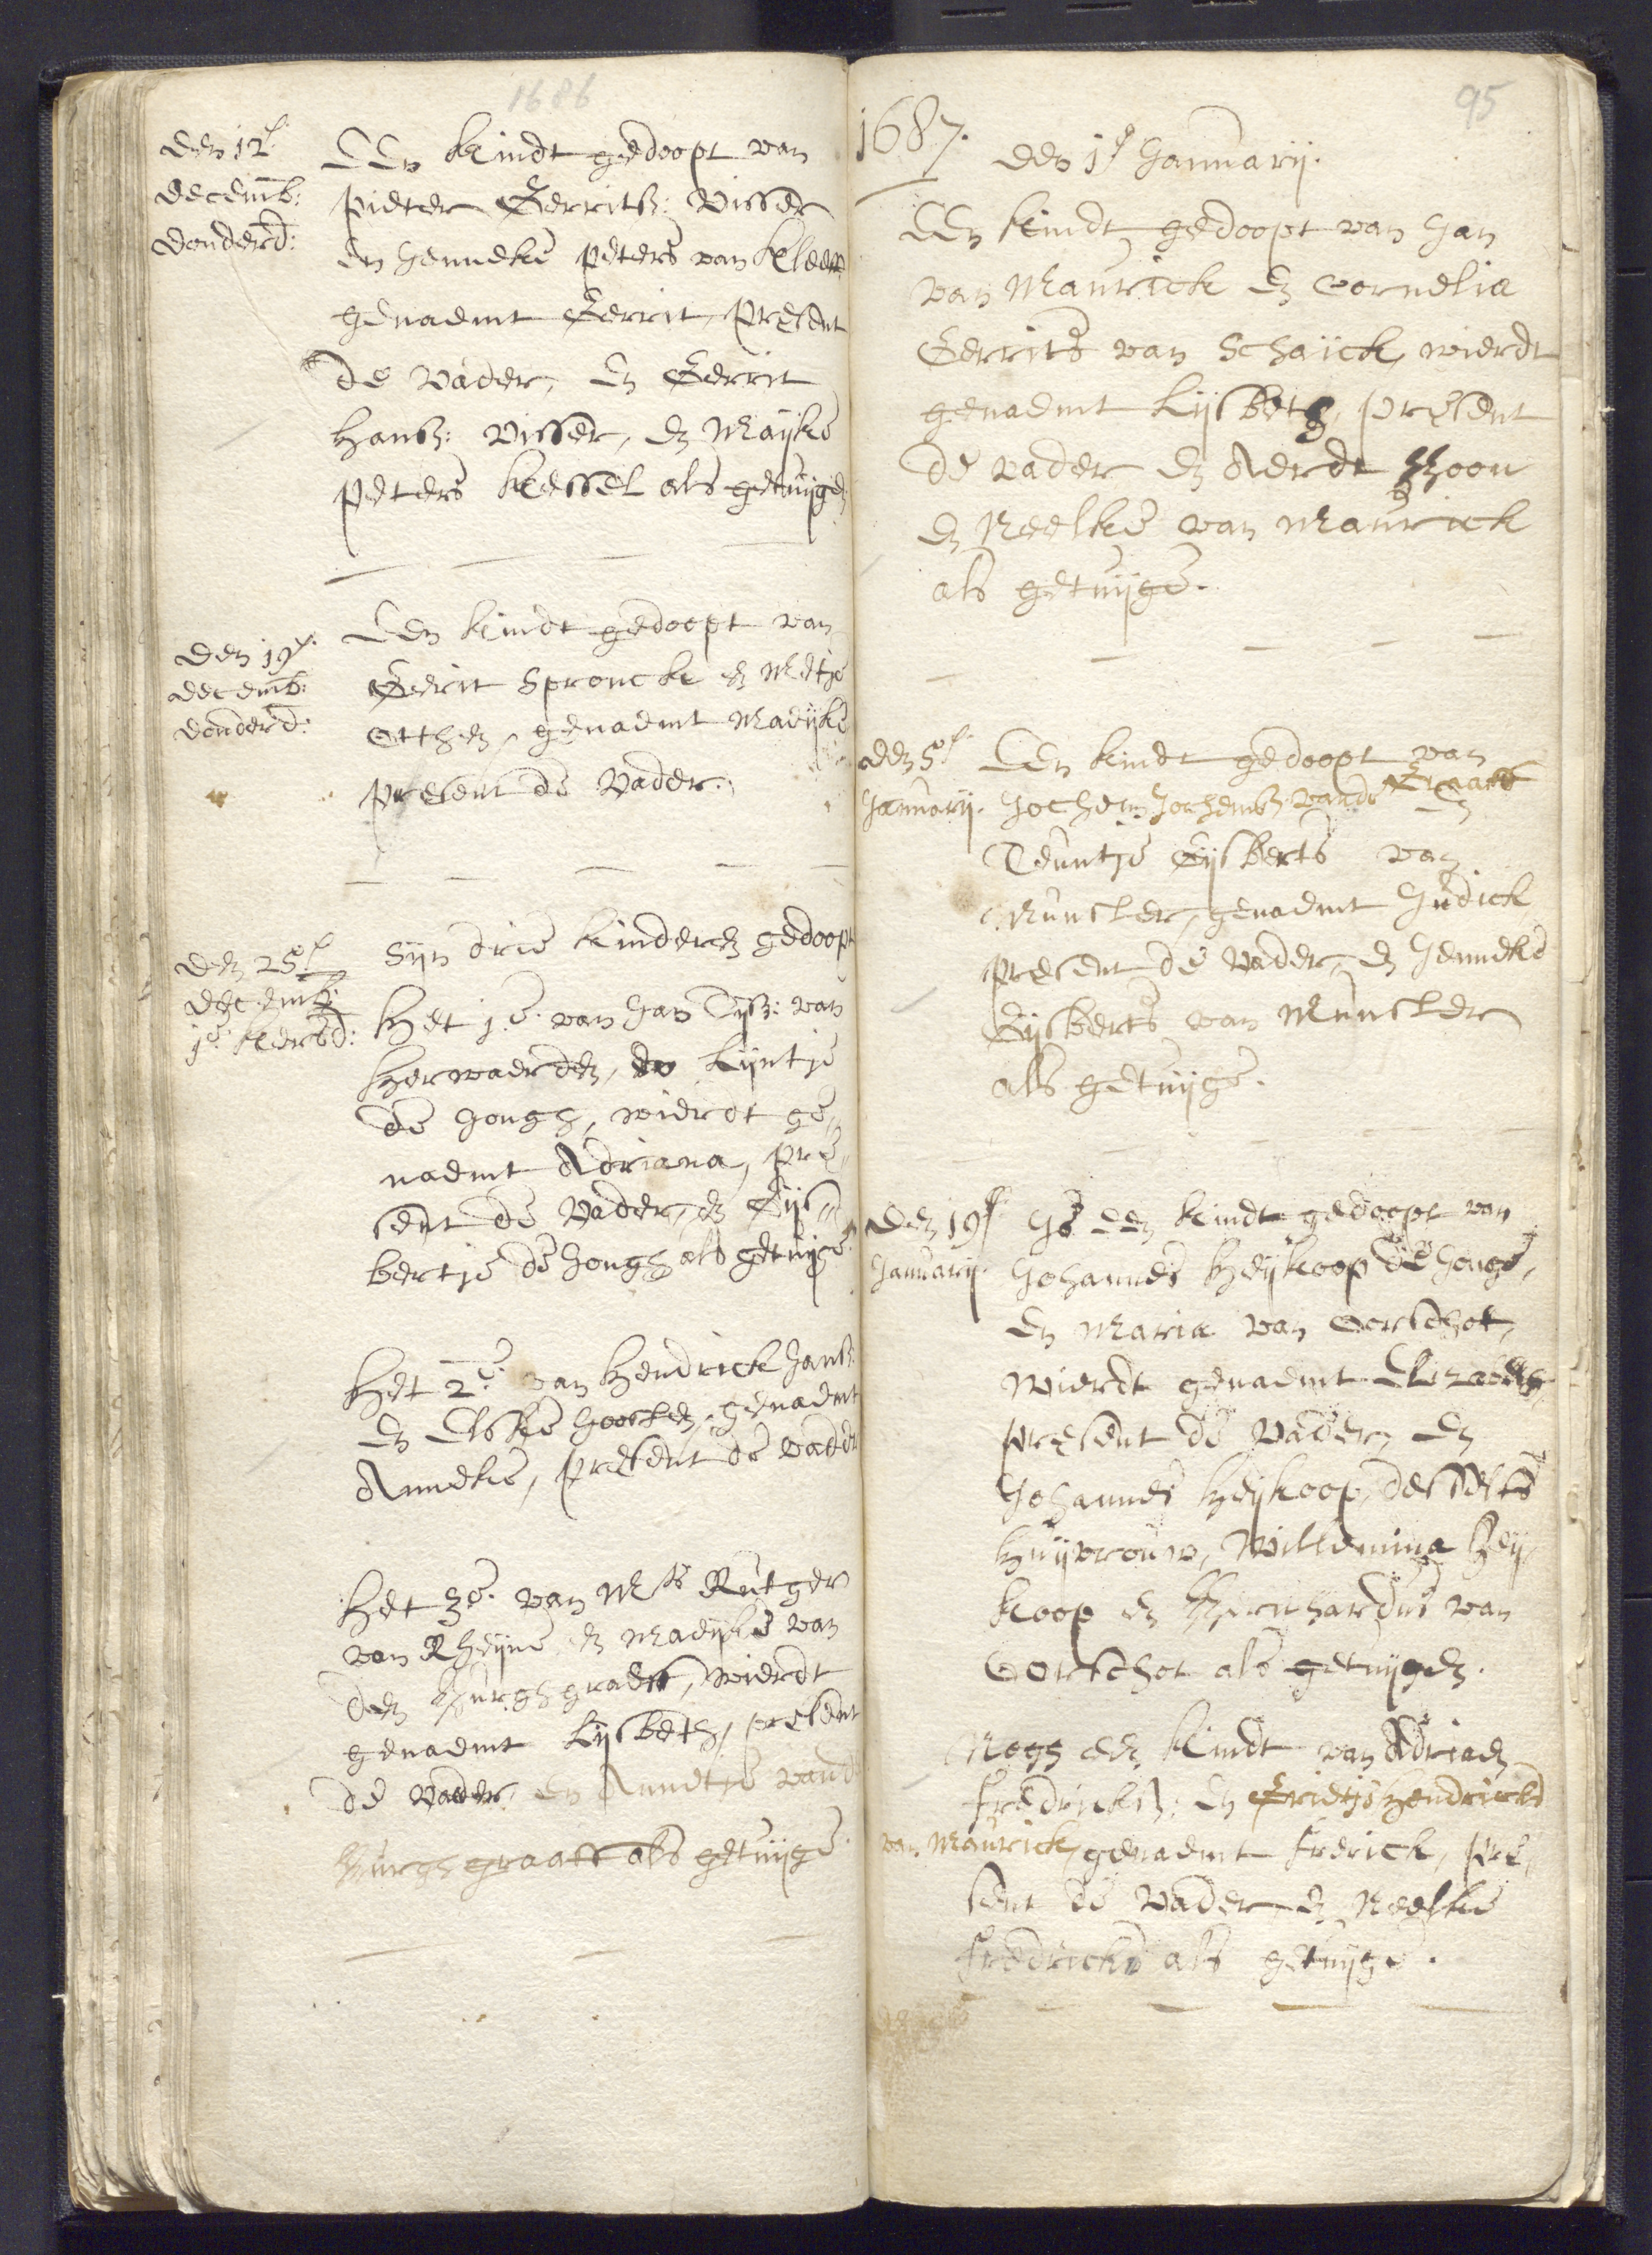 1686
den 12e
decemb:
donderd:
Een kindt gedoopt van
Pieter Gerritsz: Visser
en Jenneke Peters van Kleeff
genaemt Gerrit, present
de Vader, en Gerrit
Hansz: Visser, en Maijke
Peters Kessel als getuijgen
den 19e
decemb:
donderd:
Een kindt gedoopt van
Gerrit Spronck en Metje
Otthen, genaemt Maeijke
present de Vader.
den 25e
decemb:
1e kersd:
Sijn drie kinderen gedoopt
Het 1e. van Jan Tijsz: van
Herwaerden, en Lijntje
de Jongh, wierdt ge„
naemt Adriana, pre„
sent de Vader, en Gijs„
bertje de Jongh als getuijge
Het 2e. van Hendrick Jansz:
en Elske Joosten, genaemt
Anneke, present de vader
Het 3e. van Mr Rutger
van Rheijne en Maeijke van
den Burghgraeff, wierdt
genaemt Lijsbeth, present
de Vader, en Annetje vand
Burghgraaff als getuijge
95
1687.
den 1e Januarij.
Een kindt gedoopt van Jan
van Maurick en Cornelia
Gerrits van Schaijck, wierdt
genaemt Lijsbeth, present
de vader en Aerdt Hoon
en Neelke van Maurick
als getuijge.
den 5e
Januarij.
Een kindt gedoopt van
Jochem Jochemsz vande Graaff en
Teuntje Gijsberts van
Munster, genaemt Judick
present de Vader, en Jenneke
Gijsberts van Munster
als getuijge.
den 19e
Januarij
Is een kindt gedoopt van
Johannes Heijkoop de Jonge,
en Maria van Oorschot,
wierdt genaemt Elizabeth,
present de Vader, en
Johannes Heijkoop, desselfs
Huijsvrouw, Willemina Heij„
koop en Bernhardus van
Oorschot als getuijgen.
Nogh een kindt van Adriaen
Fredricksz: en Grietje Hendricks
van Maurick, genaemt Fredrick, pre„
sent de Vader en Neelke
Fredricks als getuijge.